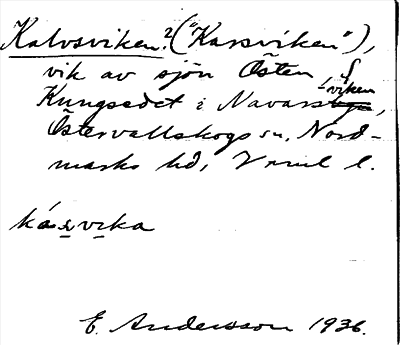 Kalvsviken? ("Karsviken"),
vik av sjön Östen,
Kungsedet i Navarsviken,
Östervallskogs sn, Nord-
marks hd, Vrml l.
kárs̲vi̲ka
E. Andersson 1936.